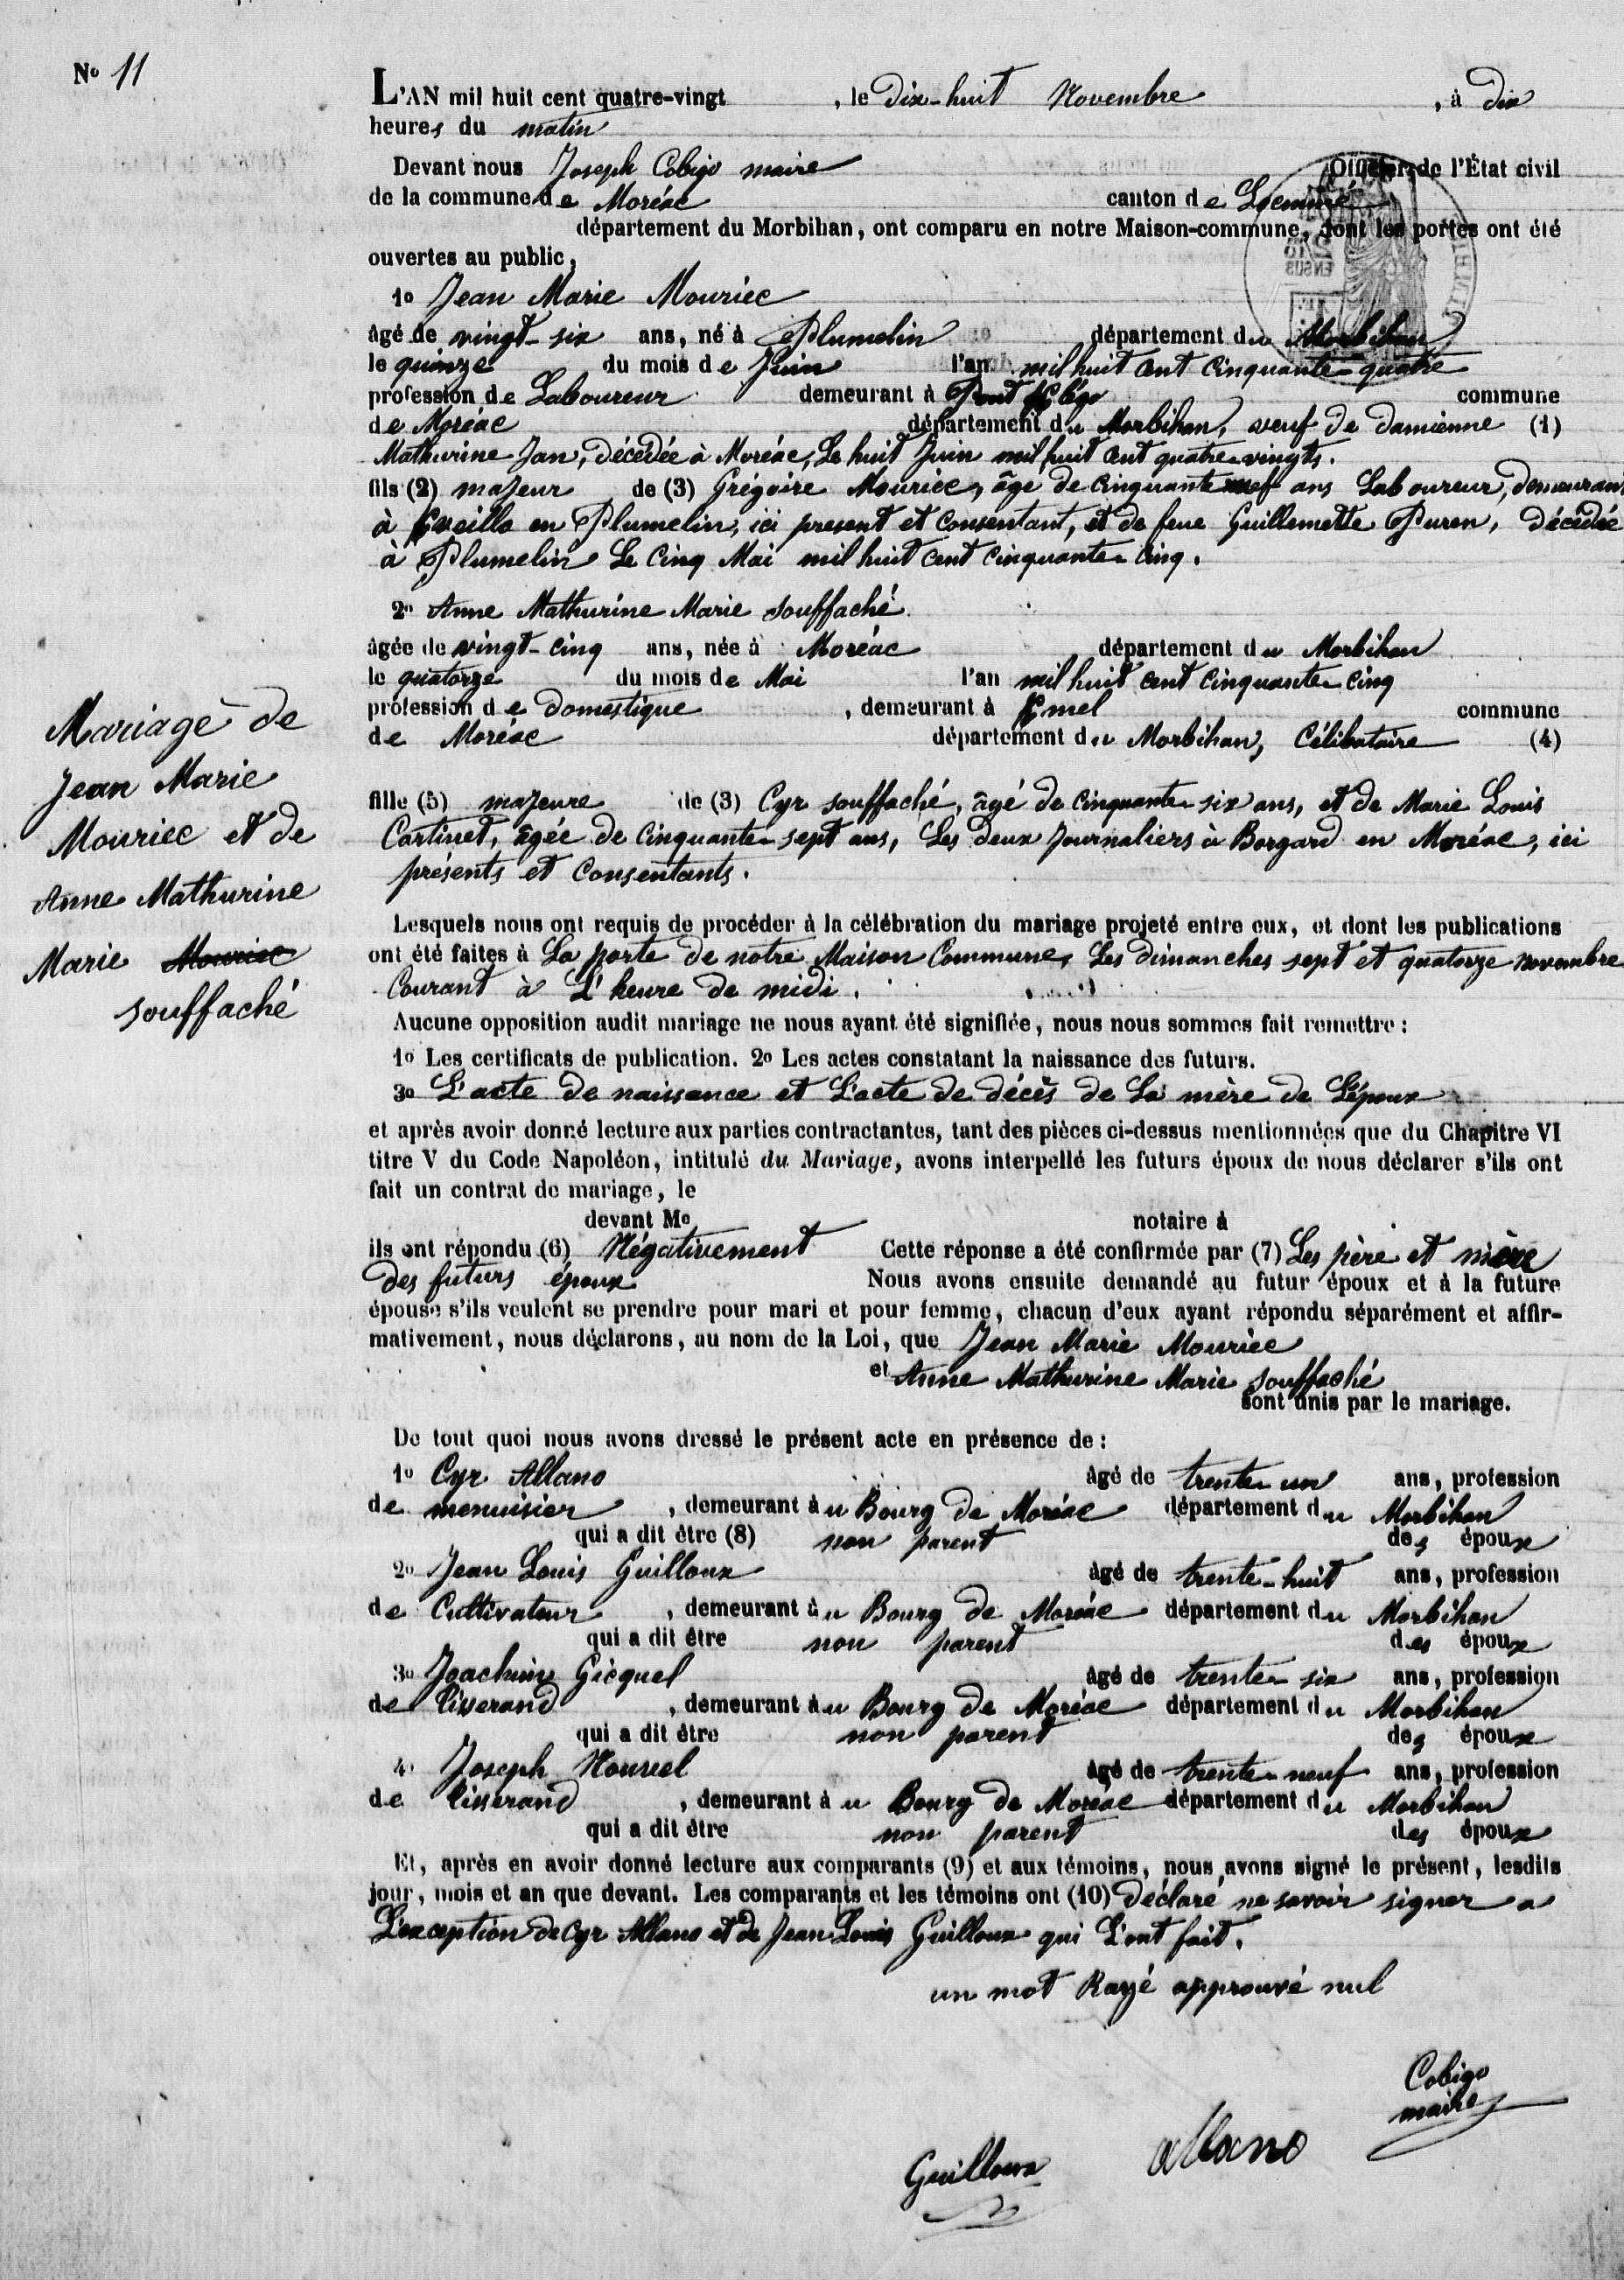 No 11
L'AN mil huit cent quatre-vingt , le dix-huit Novembre , à dix
heures du matin
Devant nous Joseph Cobigo maire Officier de l'État civil
de la commune de Moréac canton de Locminé
département du Morbihan, ont comparu en notre Maison-commune, dont les portes ont été
ouvertes au public,
1o Jean Marie Mouriec
âgé de vingt-six ans, né à Plumelin département du Morbihan
le quinze du mois de Juin l'an mil huit cent cinquante-quatre
profession de Laboureur demeurant à Pont commune
de Moréac département du Morbihan, veuf de damienne (1)
Mathurine Jan, décédée à Moréac, Le huit Juin mil huit cent quatre-vingts.
fils (2) majeur de (3) Grégoire Mouriec, âgé de cinquante neuf ans Laboureur, demeurant
à en Plumelin, ici present et consentant, et de feue Guillemette Puren, décédée
à Plumelin Le cinq Mai mil huit cent cinquante-cinq.
2o Anne Mathurine Marie souffaché
âgée de vingt-cinq ans, née à Moréac département du Morbihan
le quatorze du mois de Mai l'an mil huit cent cinquante-cinq
profession de Domestique , demeurant à commune
de Moréac département du Morbihan, Célibataire (4)
fille (5) majeure de (3) Cyr souffaché, âgé de cinquante-six ans, et de Marie Louis
Cartinet, âgée de cinquante-sept ans, Les deux journaliers à Borgard en Moréac, ici
présents et consentants.
Mariage de
Jean Marie
Mouriec et de
Anne Mathurine
Marie Mouriec
souffaché
Lesquels nous ont requis de procéder à la célébration du mariage projeté entre eux, et dont les publications
ont été faites à La porte de notre Maison Commune, Les dimanches sept et quatorze novembre
Courant à L'heure de midi.
Aucune opposition audit mariage ne nous ayant été signifiée, nous nous sommes fait remettre :
1o Les certificats de publication. 2o Les actes constatant la naissance des futurs.
3o L'acte de naissance et L'acte de décès de La mère de L'époux
et après avoir donné lecture aux parties contractantes, tant des pièces ci-dessus mentionnées que du Chapitre VI
titre V du Code Napoléon, intitulé du Mariage, avons interpellé les futurs époux de nous déclarer s'ils ont
fait un contrat de mariage, le
devant Me notaire à
ils ont répondu (6) Négativement Cette réponse a été confirmée par (7) Les père et mère
des futurs époux Nous avons ensuite demandé au futur époux et à la future
épouse s'ils veulent se prendre pour mari et pour femme, chacun d'eux ayant répondu séparément et affir-
mativement, nous déclarons, au nom de la Loi, que Jean Marie Mouriec
et Anne Mathurine Marie souffaché
sont unis par le mariage.
De tout quoi nous avons dressé le présent acte en présence de :
1o Cyr Allano âgé de trente-un ans, profession
de menuisier , demeurant au Bourg de Moréac département du Morbihan
qui a dit être (8) non parent des époux
2o Jean Louis Guilloux âgé de trente-huit ans, profession
de Cultivateur , demeurant au Bourg de Moréac département du Morbihan
qui a dit être non parent des époux
3o Joachim Gicquel âgé de trente-six ans, profession
de tisserand , demeurant au Bourg de Moréac département du Morbihan
qui a dit être non parent des époux
4o Joseph âgé de trente-neuf ans, profession
de tisserand , demeurant au Bourg de Moréac département du Morbihan
qui a dit être non parent des époux
Et, après en avoir donné lecture aux comparants (9) et aux témoins, nous avons signé le présent, lesdits
jour, mois et an que devant. Les comparants et les témoins ont (10) déclaré ne savoir signer a
L'exception de Cyr Allano et de Jean Louis Guilloux qui L'ont fait.
un mot Rayé approuvé nul
Cobigo
maire
allano
Guilloux